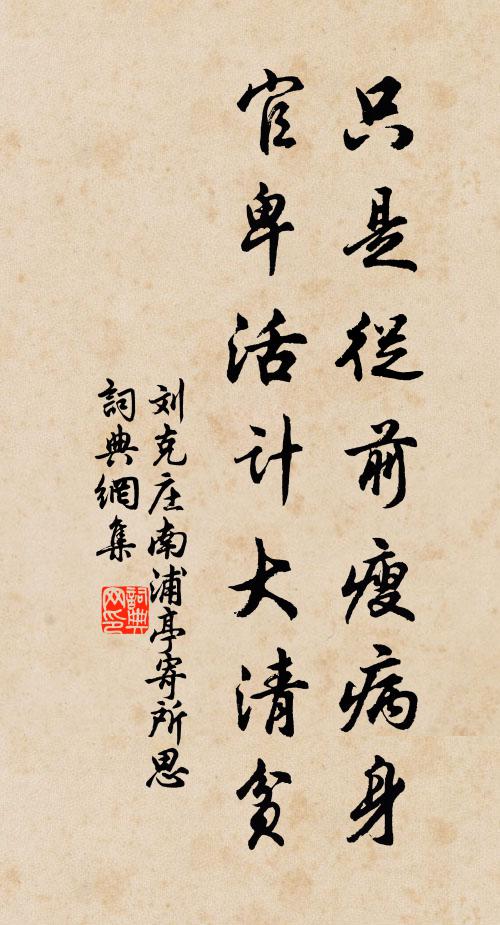 只是從前瘦病身
官卑活计大清貧
刘克庄南浦亭寄所思
詞典網集
詞典
网印